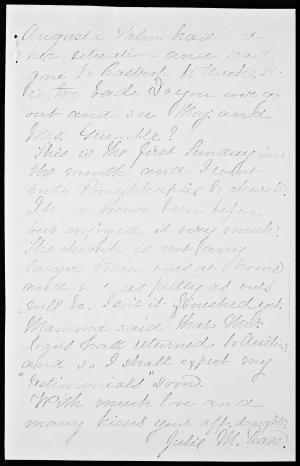 Augusta Palm had a
situation and had
gone to Bastrop to teach. It
is too bad. Do you ever go
out and see Maj. and
Mrs. Grumble?
This is the first Sunday in
the month and I went
into Poughkeepsie to church.
I have never been before
but enjoyed it very much.
The church is not any
larger than ours at home
and not as pretty as ours
will be. Isn't it finished yet.
Mamma said that Mrs.
had returned to Austin
and so I shall expect my
"testimonials" soon.
With much love and
many kisses your aff. daughter
Julie M. Pease.